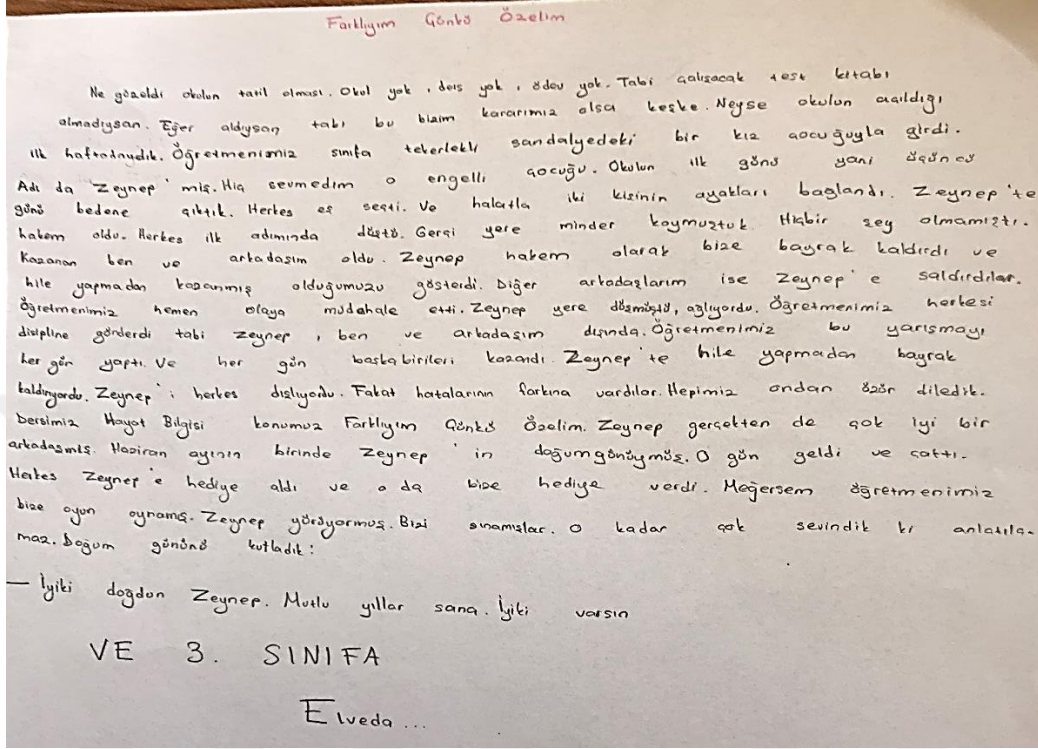 Farklıyım Günkü Özelim
Ne güzeldi okulun tatil olması. Okul yok, ders yok, ödev yok. Tabi çalışacak test kitabı
almadıysan. Eğer aldıysan tabı bu bizim kararımız olsa keşke. Neyse okulun açıldığı
ilk haftadaydık. Öğretmenimiz sınıfa tekerlekli sandalyedeki bir kız çocuğuyla girdi.
Adı da Zeynep'miş. Hiç sevmedim o engelli çocuğu. Okulun ilk günü yani üçüncü
günü bedene çıktık. Herkes eş seçti. Ve halatla iki kişinin ayakları bağlandı. Zeynep'te
hakem oldu. Herkes ilk adımında düştü. Gerçi yere minder koymuştuk. Hiçbir şey olmamıştı.
Kazanan ben ve arkadaşım oldu. Zeynep hakem olarak bize bayrak kaldırdı ve
hile yapmadan kazanmış olduğumuzu gösterdi. Diğer arkadaşlarım ise Zeynep'e saldırdılar.
Öğretmenimiz hemen olaya müdahale etti. Zeynep yere düşmüştü, ağlıyordu. Öğretmenimiz herkesi
displine gönderdi tabi zeynep, ben ve arkadaşım dışında. Öğretmenimiz bu yarışmayı
her gün yaptı. Ve her gün başka birileri kazandı. Zeynep'te hile yapmadan bayrak
kaldırıyordu. Zeynep'i herkes dışlıyordu. Fakat hatalarının farkına vardılar. Hepimiz ondan özür diledik.
Dersimiz Hayat Bilgisi konumuz Farklıyım Günkü Özelim. Zeynep gerçekten de çok iyi bir
arkadaşmış. Haziran ayının birinde Zeynep'in doğumgünüymüş. O gün geldi ve çattı.
Herkes Zeynep'e hediye aldı ve o da bize hediye verdi. Meğersem öğretmenimiz
bize oyun oynamış. Zeynep yürüyormuş. Bizi sınamışlar. O kadar çok sevindik ki anlatıla-
maz. Doğum gününü kutladık:
— İyiki doğdun Zeynep. Mutlu yıllar sana. İyiki varsın
VE 3. SINIFA
Elveda...